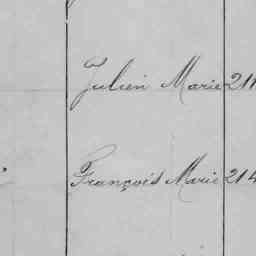 Julien Marie 21
François Marie 214